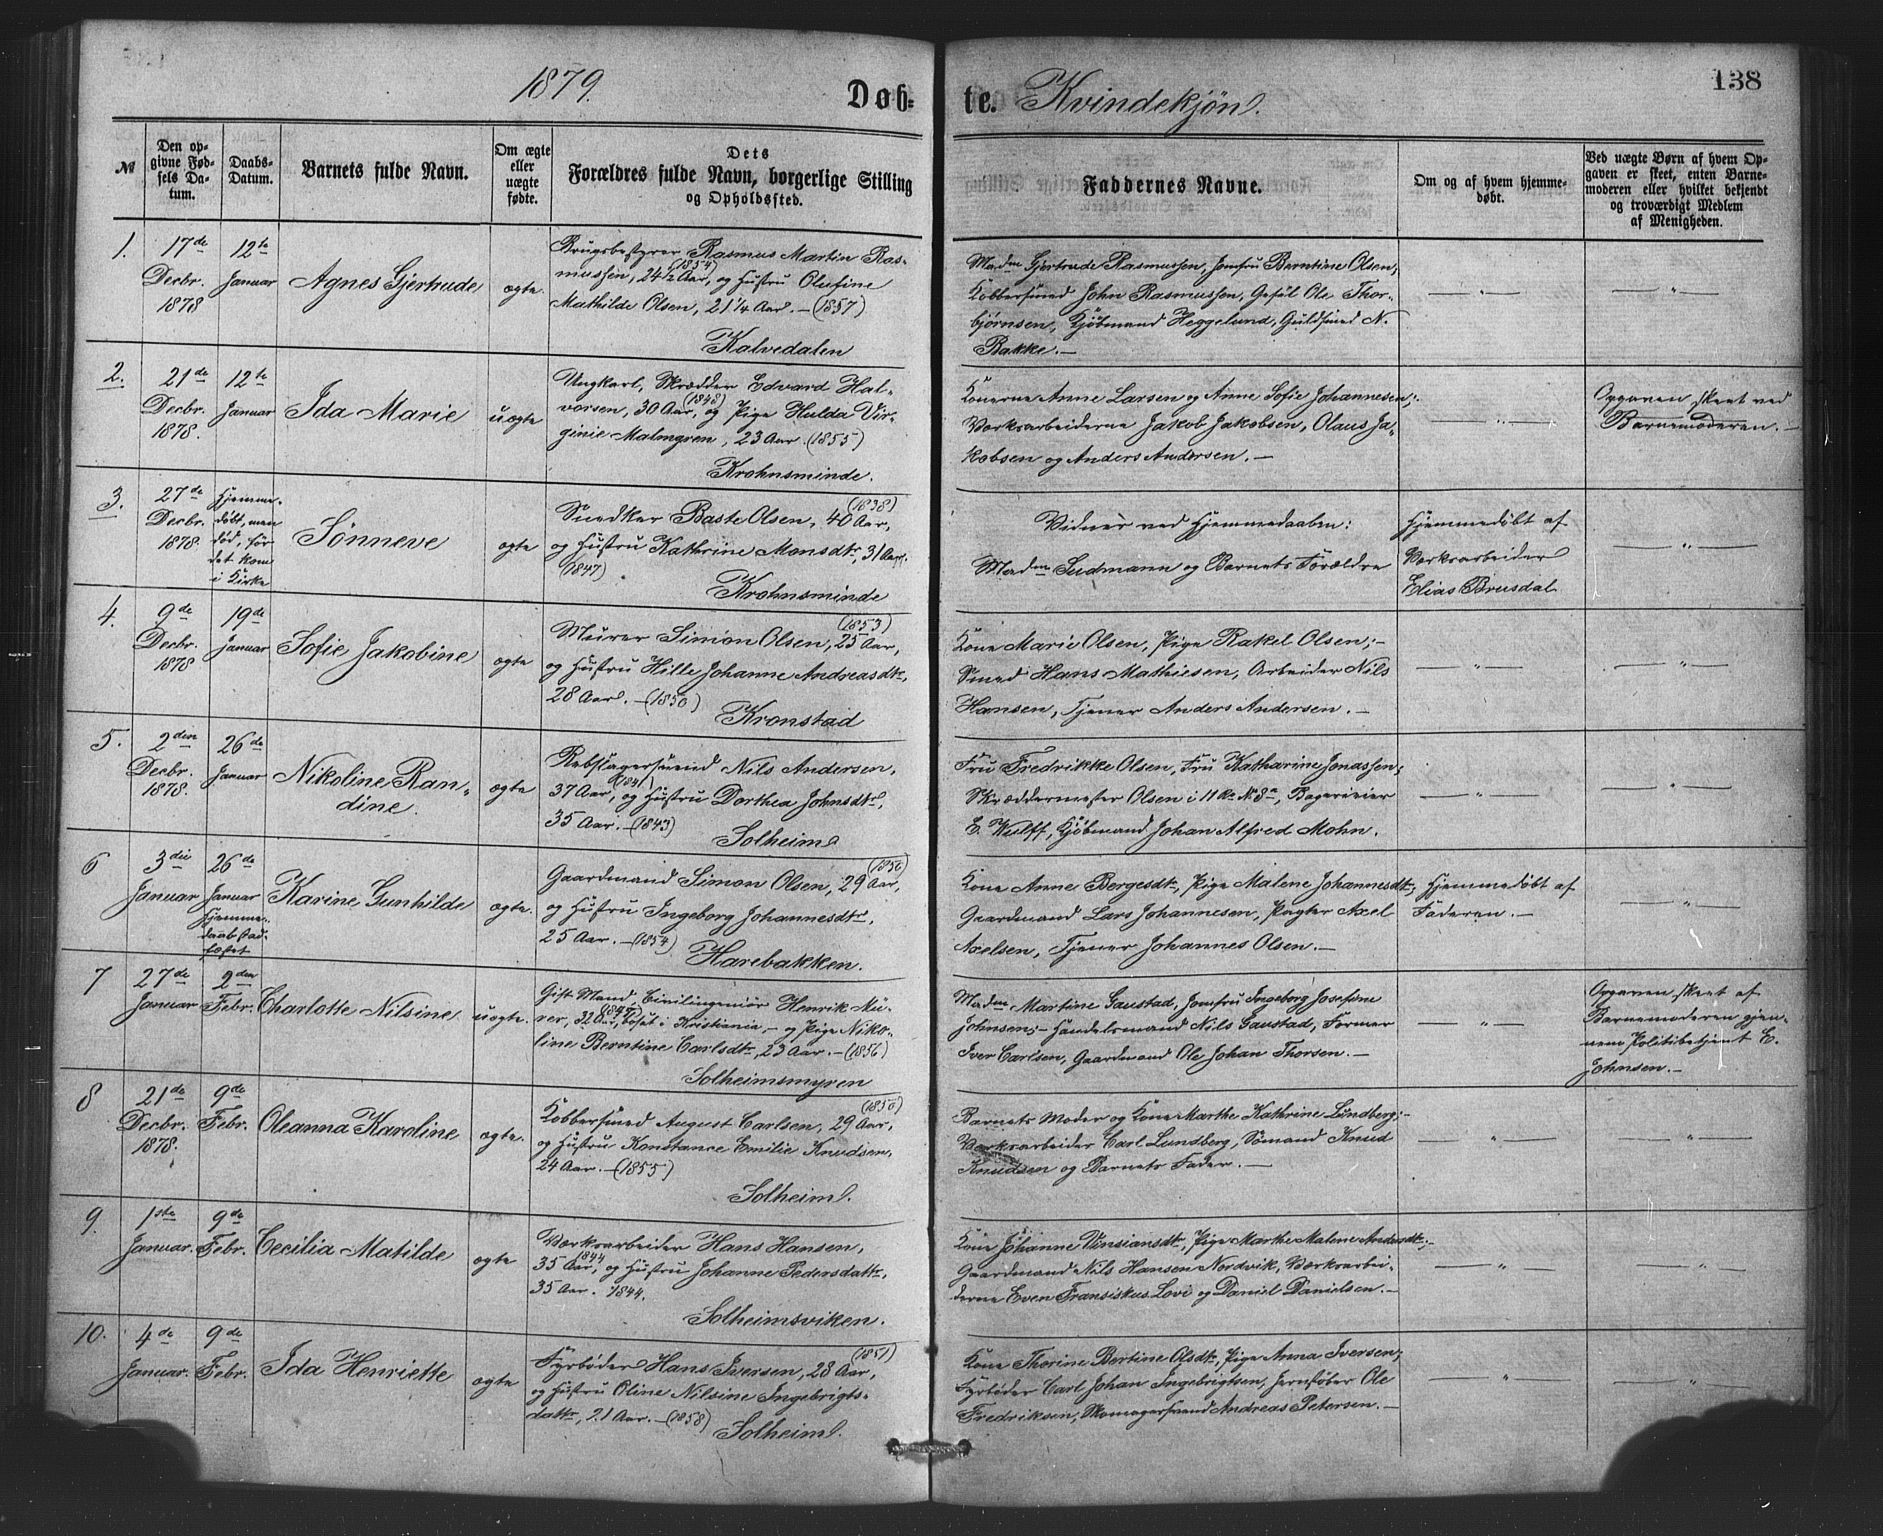 1879.
Døb-
te. Kvindekjøn.
138
№
Den op-
givne Fød-
sels Da-
tum.
Daabs-
Datum.
Barnets fulde Navn.
Om ægte
eller
uægte
fødte.
Dets
Forældres fulde Navn, borgerlige Stilling
og Opholdssted.
Faddernes Navne.
Om og af hvem hjemme-
døbt.
Ved uægte Børn af hvem Op-
gaven er skeet, enten Barne-
moderen eller hvilket bekjendt
og troværdigt Medlem
af Menigheden.
1.
17de
Decbr.
1878
12te
Januar
Agnes Gjertrude
ægte.
Brugsbestyrer Rasmus Martin Ras-
mussen, 24½ Aar, (1854) og Hustru Olufine
Mathilde Olsen, 21¼ Aar. — (1857)
Kalvedalen
Madm Gjertrude Rasmussen, Jomfru Berntine Olsen;
Kobbersmed John Rasmussen, Gesæl Ole Thor-
bjørnsen, Kjøbmand Heggelund, Guldsmed N.
Bakke. —
— " —
— " —
2.
21de
Decbr.
1878.
12te
Januar
Ida Marie
uægte
Ungkarl, Skrædder Edvard Hal-
vorsen, 30 Aar, (1848) og Pige Hulda Vir-
ginie Malmgren, 23 Aar. (1855)
Krohnsminde.
Konerne Anne Larsen og Anne Sofie Johannesen;
Værksarbeiderne Jakob Jakobsen, Olaus Ja-
kobsen og Anders Andersen. —
— " —
Opgaven skeet ved
Barnemoderen. —
3.
27de
Decbr.
1878.
Hjemme-
døbt, men
død, før
det kom
i Kirke
Sønneve
ægte
Snedker Baste Olsen, 40 Aar, (1838)
og Hustru Kathrine Monsdtr, 31 Aar.
(1847)
Krohnsminde
Vidner ved Hjemmedaaben:
Madm Sudmann og Barnets Forældre
Hjemmedøbt af
Værksarbeider
Elias Brusdal
— " —
4.
9de
Decbr.
1878
19de
Januar
Sofie Jakobine
ægte
Murer Simon Olsen, 25 Aar, (1853)
og Hustru Hille Johanne Andreasdtr,
28 Aar. — (1850)
Kronstad
Kone Marie Olsen, Pige Rakel Olsen; —
Smed Hans Mathiesen, Arbeider Nils
Hansen, Tjener Anders Andersen. —
— " —
— " —
5.
2den
Decbr.
1878.
26de
Januar
Nikoline Ran-
dine.
ægte
Rebslagersvend Nils Andersen,
37 Aar, (1841) og Hustru Dorthea Johnsdtr,
35 Aar. — (1843)
Solheim
Fru Fredrikke Olsen, Fru Katharine Jonassen;
Skræddermester Olsen i 11 R. N. 8a, Bagerieier
E. Wulff, Kjøbmand Johan Alfred Mohn.
— " —
— " —
6
3die
Januar
26de
Januar
Hjemme-
daab stad-
fæstet
Karine Gunhilde
ægte.
Gaardmand Simon Olsen, 29 Aar, (1850)
og Hustru Ingeborg Johannesdtr,
25 Aar. — (1854)
Harebakken.
Kone Anne Bergesdtr, Pige Malene Johannesdtr;
Gaardmand Lars Johannesen, Pagter Axel
Axelsen, Tjener Johannes Olsen. —
Hjemmedøbt af
Faderen. —
— " —
7
27de
Januar
2den
Febr.
Charlotte Nilsine
uægte.
Gift Mand, Civilingeniør Henrik Mü-
ver, 32 Aar, (1847) bosat i Kristiania, — og Pige Niko-
line Berntine Carlsdtr, 23 Aar. — (1856)
Solheimsmyren
Madm Martine Gaustad, Jomfru Ingeborg Josefine
Johnsen; — Handelsmand Nils Gaustad, Former
Iver Carlsen, Gaardmand Ole Johan Thorsen. —
— " —
Opgaven skeet af
Barnemoderen gjen-
nem Politibetjent E.
Johnsen. —
8
21de
Decbr.
1878.
9de
Febr.
Oleanna Karoline
ægte.
Kobbersmed August Carlsen, 29 Aar, (1850)
og Hustru Konstance Emilie Knudsen,
24 Aar. — (1855)
Solheim.
Barnets Moder og Kone Marthe Kathrine Lundberg; —
Værksarbeider Carl Lundberg, Sømand Knud
Knudsen og Barnets Fader. —
— " —
— " —
9.
1ste
Januar.
9de
Febr.
Cecilia Matilde
ægte
Værksarbeider Hans Hansen,
35 Aar, 1844 og Hustru Johanne Pedersdatr,
35 Aar. 1844.
Solheimsviken.
Kone Johanne Vinsiansdtr, Pige Marthe Malene Andersdtr; —
Gaardmand Nils Hansen Nordvik, Værksarbei-
derne Even Fransiskus Lovi og Daniel Danielsen. —
— " —
— " —
10.
4de
Januar.
9de
Febr.
Ida Henriette
ægte
Fyrbøder Hans Iversen, 28 Aar, (1851)
og Hustru Oline Nilsine Ingebrigts-
datr, 21 Aar. — (1858)
Solheim.
Kone Thorine Bertine Olsdtr, Pige Anna Iversen;
Fyrbøder Carl Johan Ingebrigtsen, Jernstøber Ole
Fredriksen, Skomagersvend Andreas Petersen. —
— " —
— " —